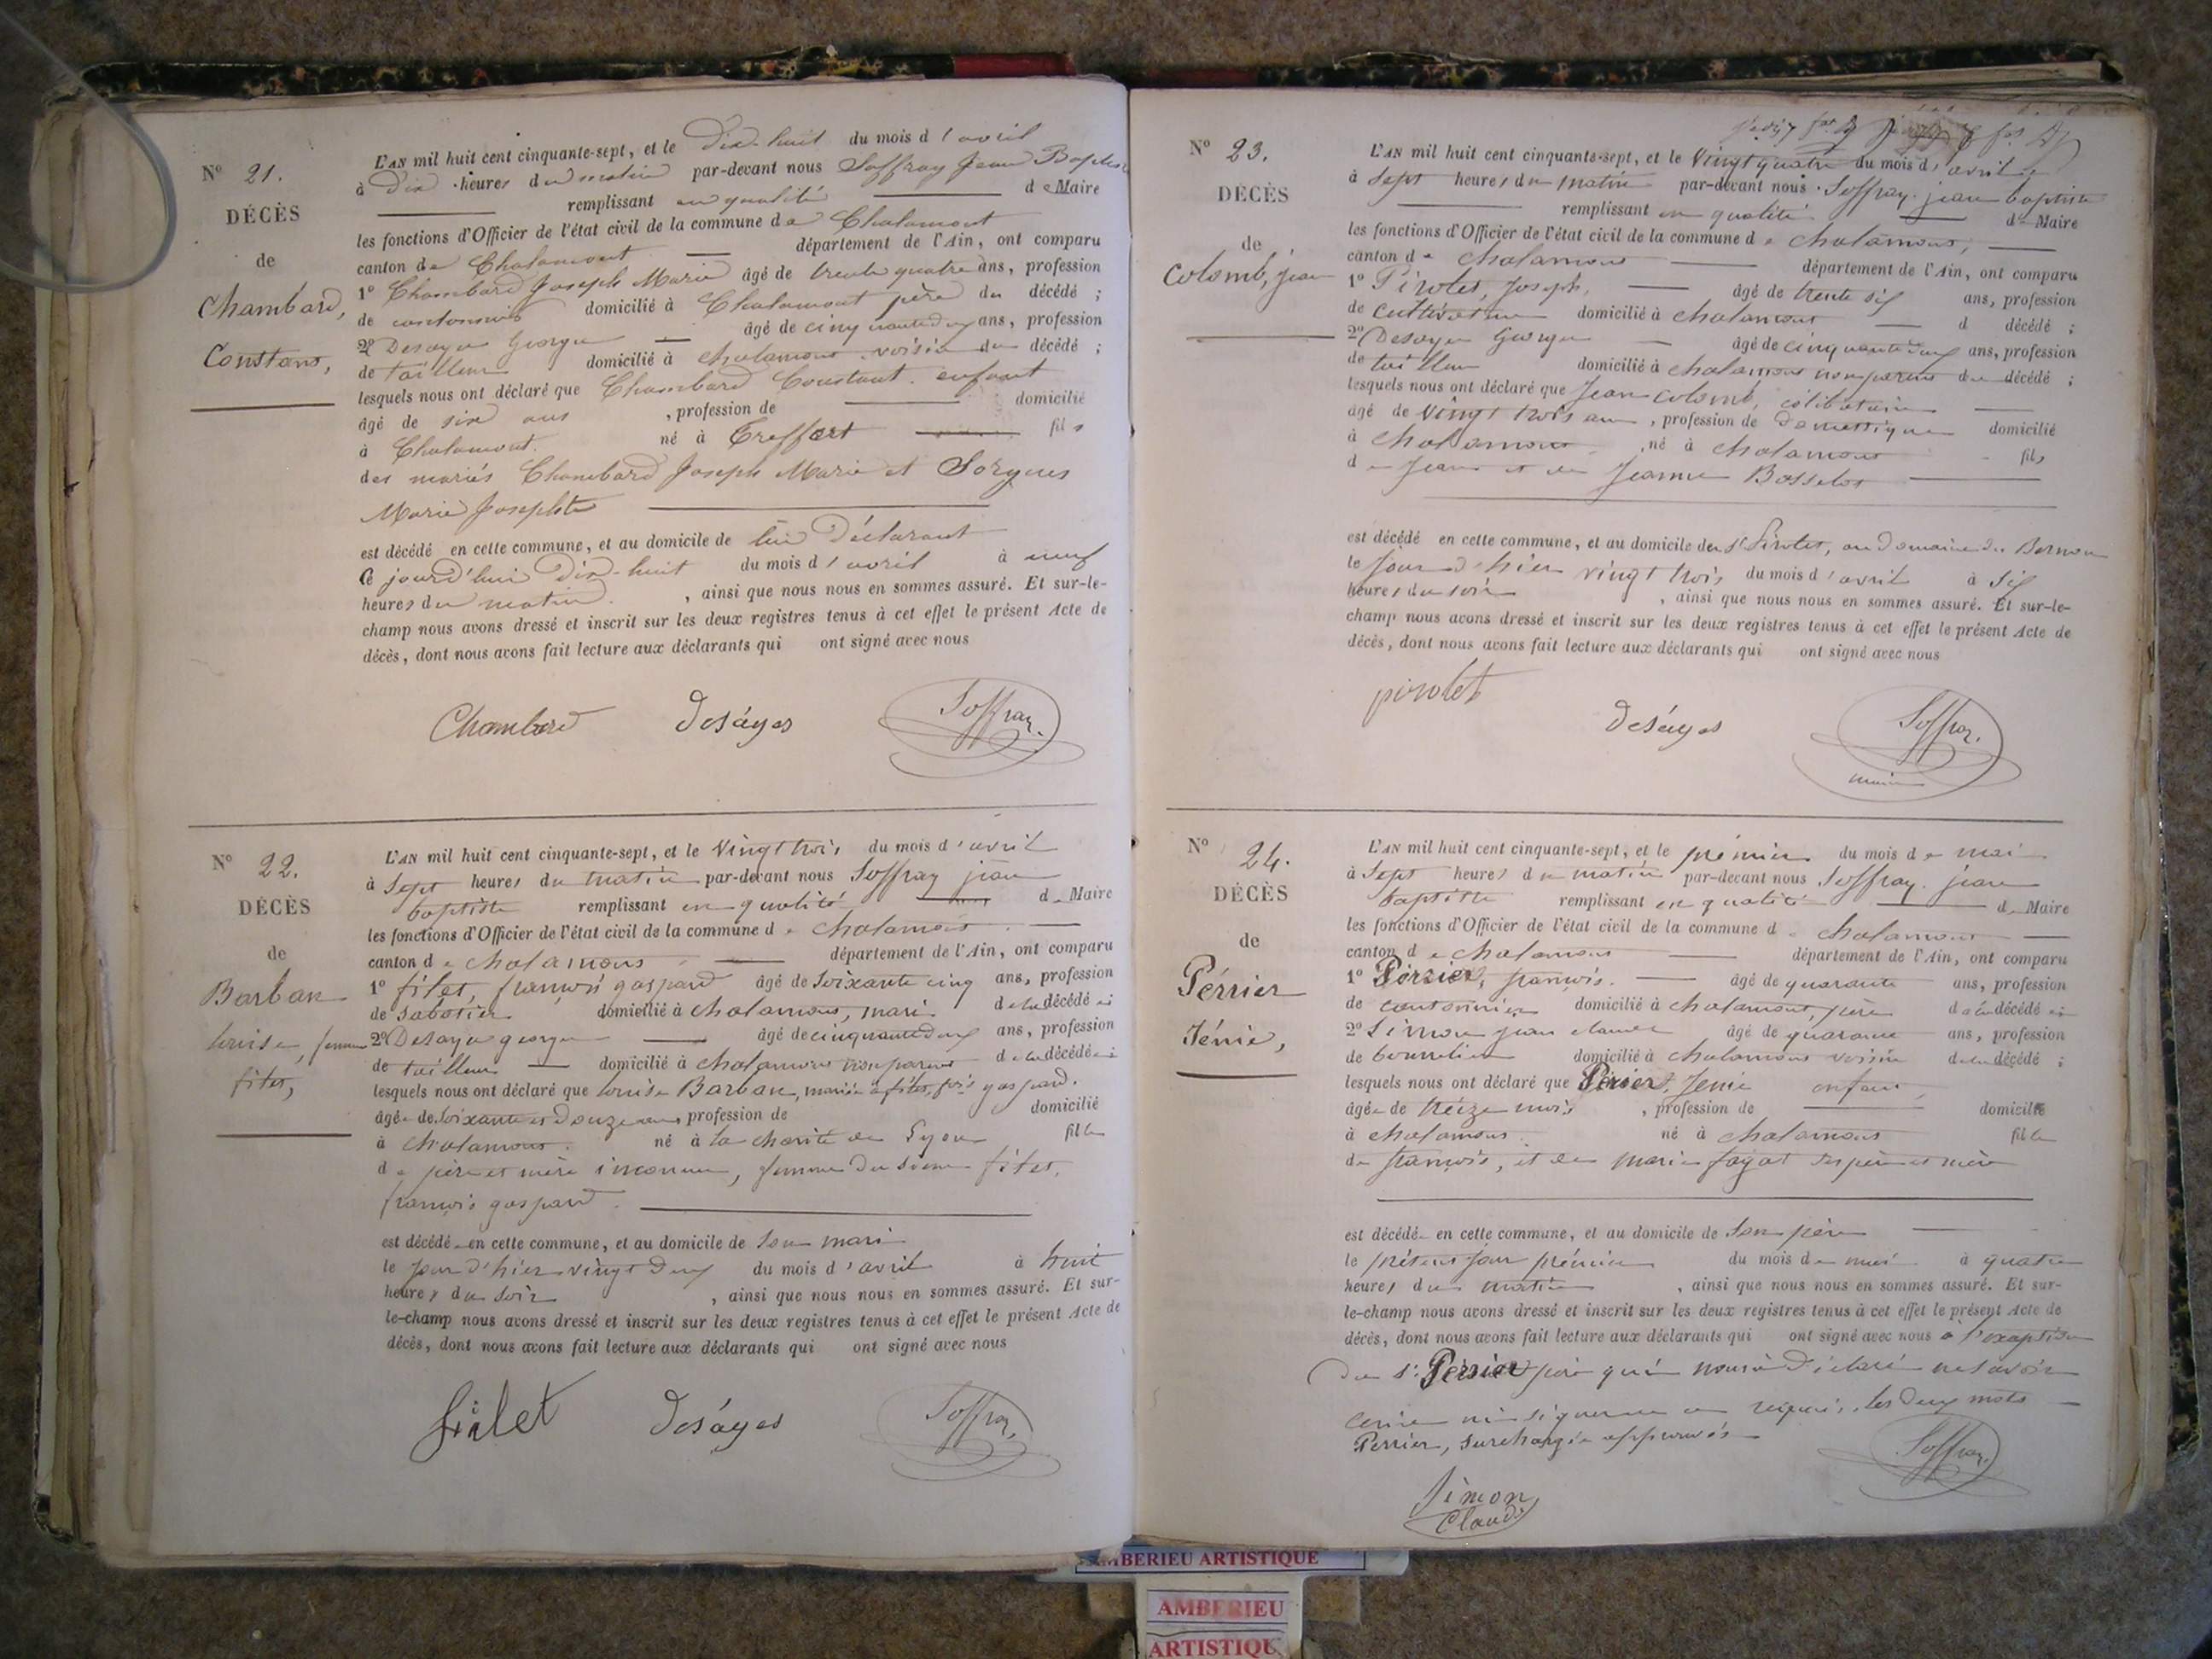 N° 21.
DÉCÈS
de
Chambard,
Constant,
L'AN mil huit cent cinquante-sept, et le Dix-huit du mois d'avril
à Dix heures du matin par-devant nous Soffray Jean Baptiste
remplissant en qualité de Maire
les fonctions d'Officier de l'état civil de la commune de Chalamont
canton de Chalamont département de l'Ain, ont comparu
1° Chambard Joseph Marie âgé de trente quatre ans, profession
de cantonnier domicilié à Chalamont père du décédé ;
2° Desayes George âgé de cinquante deux ans, profession
de tailleur domicilié à Chalamont voisin du décédé ;
lesquels nous ont déclaré que Chambard Constant enfant
âgé de six ans , profession de domicilié
à Chalamont. né à Treffort fils
des mariés Chambard Joseph Marie et Sorgues
Marie Josephte
est décédé en cette commune, et au domicile de lui Déclarant
Ce jourd'hui Dix-huit du mois d'avril à neuf
heures du matin. , ainsi que nous nous en sommes assuré. Et sur-le-
champ nous avons dressé et inscrit sur les deux registres tenus à cet effet le présent Acte de
décès, dont nous avons fait lecture aux déclarants qui ont signé avec nous
Chambard Deságes Soffray
N° 22.
DÉCÈS
de
Barban
louise, femme
filet,
L'AN mil huit cent cinquante-sept, et le Vingt trois du mois d'avril
à Sept heures du matin par-devant nous Soffray jean
baptiste remplissant en qualité de Maire
les fonctions d'Officier de l'état civil de la commune de chalamont
canton de chalamont département de l'Ain, ont comparu
1° filet, françois gaspard âgé de Soixante cinq ans, profession
de sabotier domicilié à chalamont, mari de la décédée
2° Desayes george âgé de cinquante deux ans, profession
de tailleur domicilié à chalamont non parent de la décédée
lesquels nous ont déclaré que louise Barban, mariée à filet, fois gaspard.
âgée de Soixante et Douze ans profession de domicilié
à chalamont. né à la charité de Lyon fille
de père et mère inconnus, femme du sieur filet,
françois gaspard.
est décédée en cette commune, et au domicile de son mari
le jour d'hier vingt deux du mois d'avril à huit
heures du soir , ainsi que nous nous en sommes assuré. Et sur-
le-champ nous avons dressé et inscrit sur les deux registres tenus à cet effet le présent Acte de
décès, dont nous avons fait lecture aux déclarants qui ont signé avec nous
filet Deságes Soffray
N° 23.
DÉCÈS
de
Colomb, jean
L'AN mil huit cent cinquante-sept, et le Vingt quatre du mois d'avril
à Sept heures du matin par-devant nous Soffray jean baptiste
remplissant en qualité de Maire
les fonctions d'Officier de l'état civil de la commune de chalamont,
canton de chalamont département de l'Ain, ont comparu
1° Pirolet, Joseph, âgé de trente six ans, profession
de cultivateur domicilié à chalamont d décédé ;
2° Desayes George âgé de cinquante deux ans, profession
de tailleur domicilié à chalamont non parent du décédé ;
lesquels nous ont déclaré que Jean Colomb, célibataire
âgé de Vingt trois ans, profession de domestique domicilié
à chalamont né à chalamont fils
de Jean et de Jeanne Bosselot
est décédé en cette commune, et au domicile du Sr Pirolet, au Domaine du
le Jour d'hier vingt trois du mois d'avril à Six
heures du soir , ainsi que nous nous en sommes assuré. Et sur-le-
champ nous avons dressé et inscrit sur les deux registres tenus à cet effet le présent Acte de
décès, dont nous avons fait lecture aux déclarants qui ont signé avec nous
pirolet Deságes Soffray
maire
N° 24.
DÉCÈS
de
Pérrier
Jénie,
L'AN mil huit cent cinquante-sept, et le prémier du mois de mai
à Sept heures du matin par-devant nous Soffray jean
baptiste remplissant en qualité de Maire
les fonctions d'Officier de l'état civil de la commune de chalamont
canton de chalamont département de l'Ain, ont comparu
1° Perrier, françois. âgé de quarante ans, profession
de cantonnier domicilié à chalamont, père de la décédée
2° Simon jean claude âgé de quarante ans, profession
de bourrelier domicilié à chalamont voisin de la décédé ;
lesquels nous ont déclaré que Perrier, Jenie enfant,
âgée de treize mois , profession de domicilié
à chalamont. né à chalamont fille
de françois, et de marie fayat ses père et mère
est décédée en cette commune, et au domicile de son père
le présent jour prémier du mois de mai à quatre
heures du matin , ainsi que nous nous en sommes assuré. Et sur-
le-champ nous avons dressé et inscrit sur les deux registres tenus à cet effet le présent Acte de
décès, dont nous avons fait lecture aux déclarants qui ont signé avec nous à l'exception
du Sr. Perrier père qui nous a déclaré ne savoir
écrire ni signer de ce requis, les deux mots
Perrier, surchargés approuvés
Soffray
Simon
Claude
AMBERIEU ARTISTIQUE
AMBERIEU
ARTISTIQU